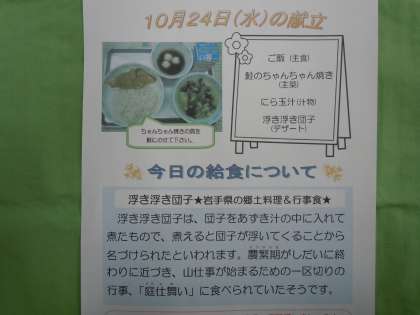 10月24日(水)の献立
ご飯(主食)
鮭のちゃんちゃん焼き
(主菜)
にら玉汁(汁物)
浮き浮き団子
(デザート)
ちゃんちゃん焼きの鮭を
飯にのせて下さい。
今日の給食について
浮き浮き団子★岩手県の郷土料理&行事食★
浮き浮き団子は、団子をあずき汁の中に入れて
煮たもので、煮えると団子が浮いてくることから
名づけられたといわれます。農繁期がしだいに終
わりに近づき、山仕事が始まるための一区切りの
行事、「庭仕舞い」に食べられていたそうです。